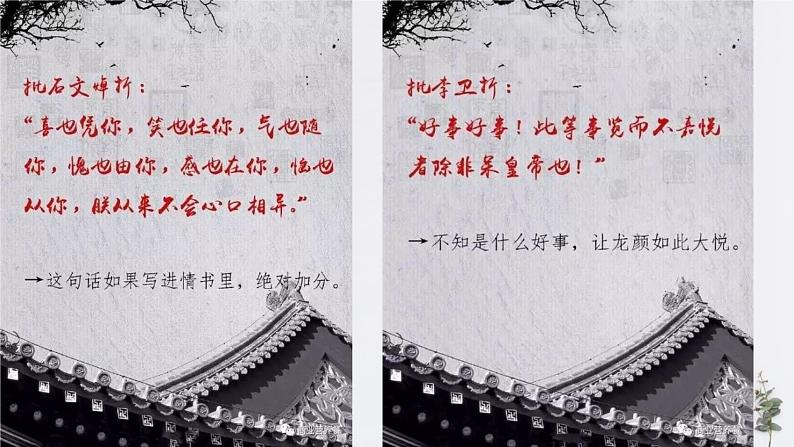 批石文焯折：
“喜也凭你，笑也任你，气也随
你，愧也由你，感也在你，恼也
从你，朕从来不会心口相异。”
→这句话如果写进情书里，绝对加分。
批李卫折：
“好事好事！此等事览而不嘉悦
者除非呆皇帝也！”
→不知是什么好事，让龙颜如此大悦。